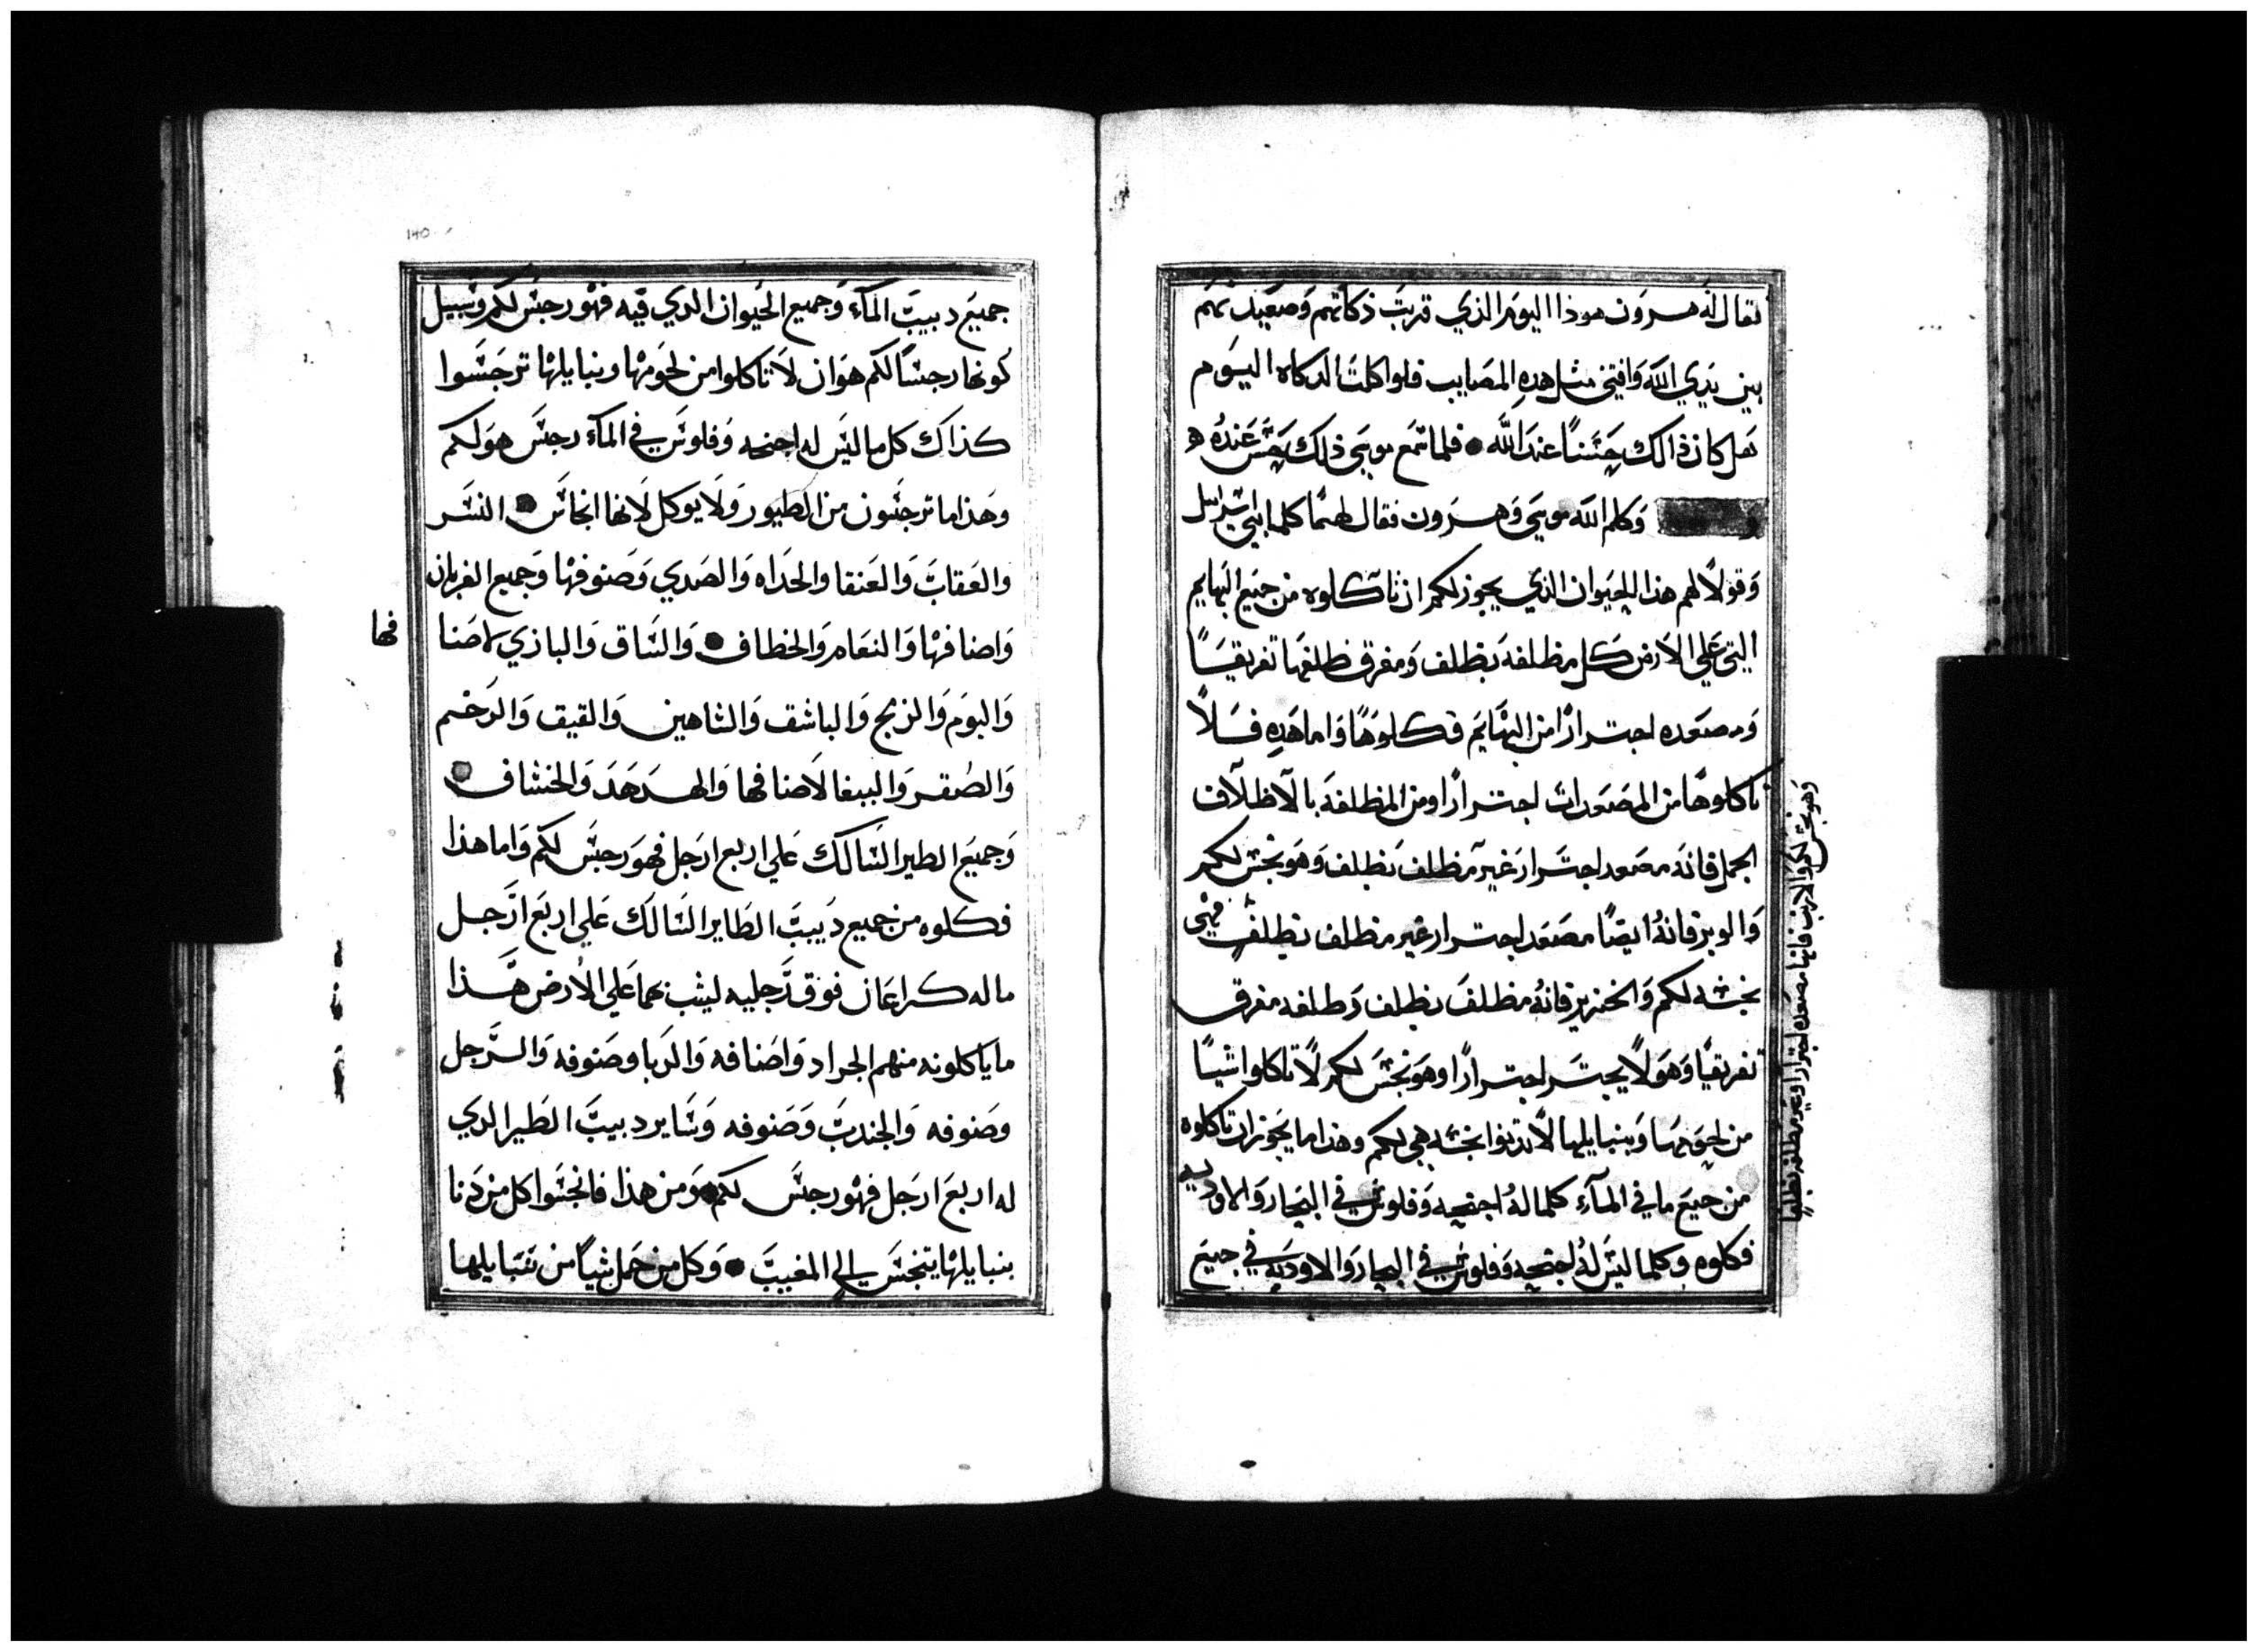 فقال له هرون هوذا اليوم الذي قربت ذكاتهم وصعيدتهم
بين يدي الله وافتني مثل هذه المصايب فلو اكلت الدكاه اليوم
هل كان ذالك حسنًا عند الله • فلما سمع موسى ذلك حسن عنده ه
وكلم الله موسى وهرون فقال لهما كلما بني اسرايل
وقولا لهم هذا الحيوان الذي يجوز لكم ان تاكلوه من جميع البهايم
التي على الارض كل مظلفه بظلف ومفرق ظلفها تفريقًا
ومصعده اجترارًا من البهايم فكلوها واما هذه فلا
تاكلوها من المصعدات اجترارًا ومن المظلفة بالاظلاف
الجمل فانه مصعد اجترار غير مظلف بظلف وهو نجس لكم
والوبر فانه ايضًا مصعد اجترار غير مظلف بظلف فهي
نجسه لكم والخنزير فانه مظلف بظلف وظلفه مفرق
تفريقًا وهو لا يجتر اجترارًا وهو نجس لكم لا تاكلوا شيًا
من لحومها وبنبايلها لا تدنوا نجسه هي لكم وهذا ما يجوز ان تاكلوه
من جميع ما في المآء كلما له اجنحه وفلوس في البحار والاوديه
فكلوه وكلما ليس له اجنحه وفلوس في البحار والاوديه في جميع
وهو نجس لكم والارنب فانها مصعده اجترارا وغير مظلفه بظلف
١٤٥
جميع دبيب المآء وجميع الحيوان الدي فيه فهو رجس لكم وسبيل
كونها رجسًا لكم هو ان لا تاكلوا من لحومها وبنبايلها ترجسوا
كذاك كل ما ليس له اجنحه وفلوس في المآء رجس هو لكم
وهذا ما ترجسون من الطيور ولا يوكل لانها انجاس • النسر
والعقاب والعنقا والحداه والصدي وصنوفها وجميع الغربان
واصنافها والنعام والخطاف • والساق والبازي لاصنا
فها
والبوم والزمج والباشق والشاهين والقيق والرخم
والصقر والببغا لاصنافها والهدهد والخشاف
وجميع الطير السالك على اربع ارجل فهو رجس لكم واما هذا
فكلوه من جميع دبيب الطاير السالك على اربع ارجل
ما له كراعان فوق رجليه ليثب بهما على الارض هذا
ما ياكلونه منهم الجراد واصنافه والدبا وصنوفه والرجل
وصنوفه والجندب وصنوفه وساير دبيب الطير الدي
له اربع ارجل فهو رجس لكم • ومن هذا فانجسوا كل من دنا
بنبايلها يتنجس الي المغيب • وكل من حمل شيًا من نبايلها